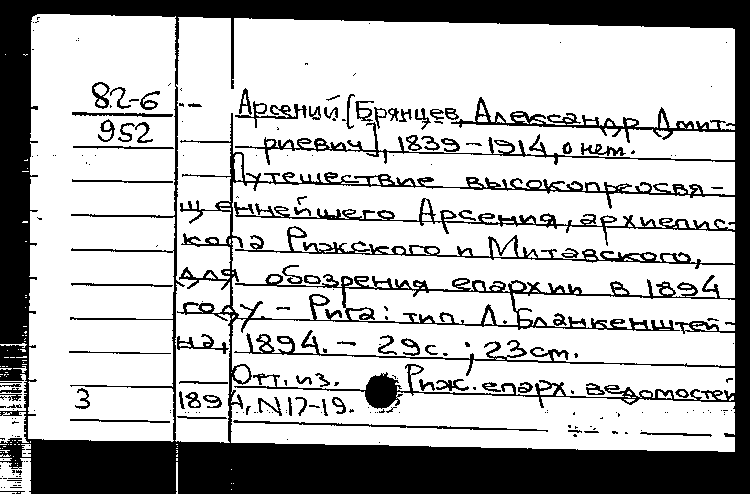 82-6 -- Арсений [Брянцев, Александр Дмит-
952 риевич], 1839-1914, о нем.
Путешествие высокопреосвя-
щеннейшего Арсения, архиепис-
копа Рижского и Митавского,
для обозрения епархии в 1894
году. - Рига: тип. Л. Бланкенштей-
на, 1894. - 29с. ; 23см.
Отт. из. Риж. епарх. ведомостей
3 1894, N17-19.